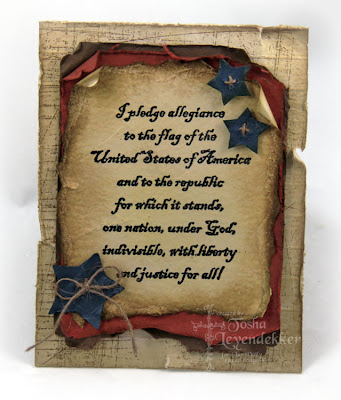 I pledge allegiance
to the flag of the
United States of America
and to the republic
for which it stands,
one nation, under God,
indivisible, with liberty
and justice for all!
Tosha
Leyendekker